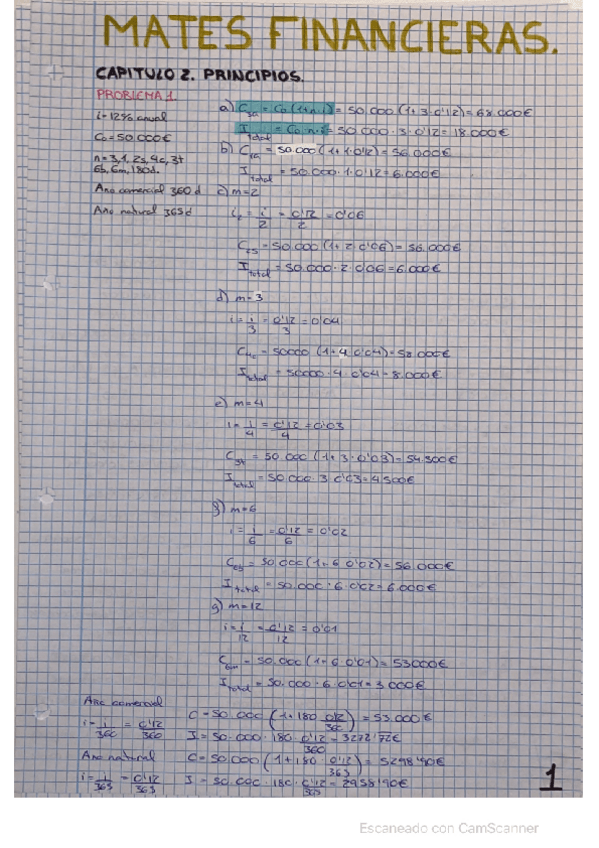 MATES FINANCIERAS.
CAPITULO 2. PRINCIPIOS.
PROBLEMA 1.
i=12% anual
C₀=50.000€
n=3,1,2s,4c,3t
6b,6m,180d.
Ano comercial 360 d
Ano natural 365d
a) C₃ₐ = C₀(1+n·i) = 50.000 (1+3·0'12)=68.000€
I total = C₀·n·i = 50.000·3·0'12=18.000€
b) C₁ₐ = 50.000(1+1·0'12)=56.000€
I total = 50.000·1·0'12=6.000€
c) m=2
i₂ = i/2 = 0'12/2 = 0'06
C₂ₛ = 50.000(1+2·0'06)= 56.000€
I total = 50.000·2·0'06=6.000€
d) m=3
i = i/3 = 0'12/3 = 0'04
C₄c = 50000 (1+4·0'04)=58.000€
I total = 50000·4·0'04=8.000€
e) m=4
i = i/4 = 0'12/4 = 0'03
C₃t = 50.000 (1+3·0'03)=54500€
I total = 50.000·3·0'03=4500€
f) m=6
i = i/6 = 0'12/6 = 0'02
C₆ = 50.000(1+6·0'02)=56.000€
I total = 50.000·6·0'02=6.000€
g) m=12
i = i/12 = 0'12/12 = 0'01
C₆m = 50.000(1+6·0'01)=53000€
I total = 50.000·6·0'01=3000€
Ano comercial
i = i/360 = 0'12/360
C=50.000 (1+180·0'12/360) = 53.000€
I=50.000·180·0'12/360=3272'72€
Ano natural
i = i/365 = 0'12/365
C=50.000 (1+180·0'12/365) = 5298'90€
I=50.000·180·0'12/365=2958'90€
1
Escaneado con CamScanner